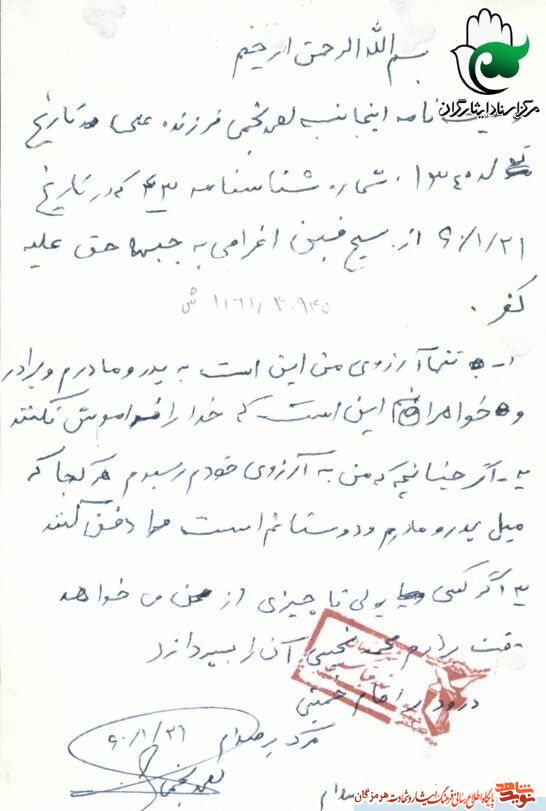 بسم الله الرحمن الرحیم
مرکز اسناد ایثارگران
نامه اینجانب نجمی فرزند علی تاریخ
۱۳۴۰ . شماره شناسنامه ۴۳ که در تاریخ
۶۰/۱/۲۱ از بسیج فین اعزامی به جبهه حق علیه
کفر .
۱- تنها آرزوی من این است به پدر و مادرم و برادر
و خواهرانم این است که خدا را فراموش نکنند
۲- اگر چنانچه که من به آرزوی خودم رسیدم هر کجا که
میل پدر و مادرم و دوستانم است مرا دفن کنند
۳- اگر کسی پولی یا چیزی از من می خواهد
برادرم محمد نجمی آن را بپردازد
درود بر امام خمینی
مرگ بر صدام
۶۰/۱/۲۱
نوید شاهد
پایگاه اطلاع رسانی فرهنگ ایثار و شهادت هرمزگان